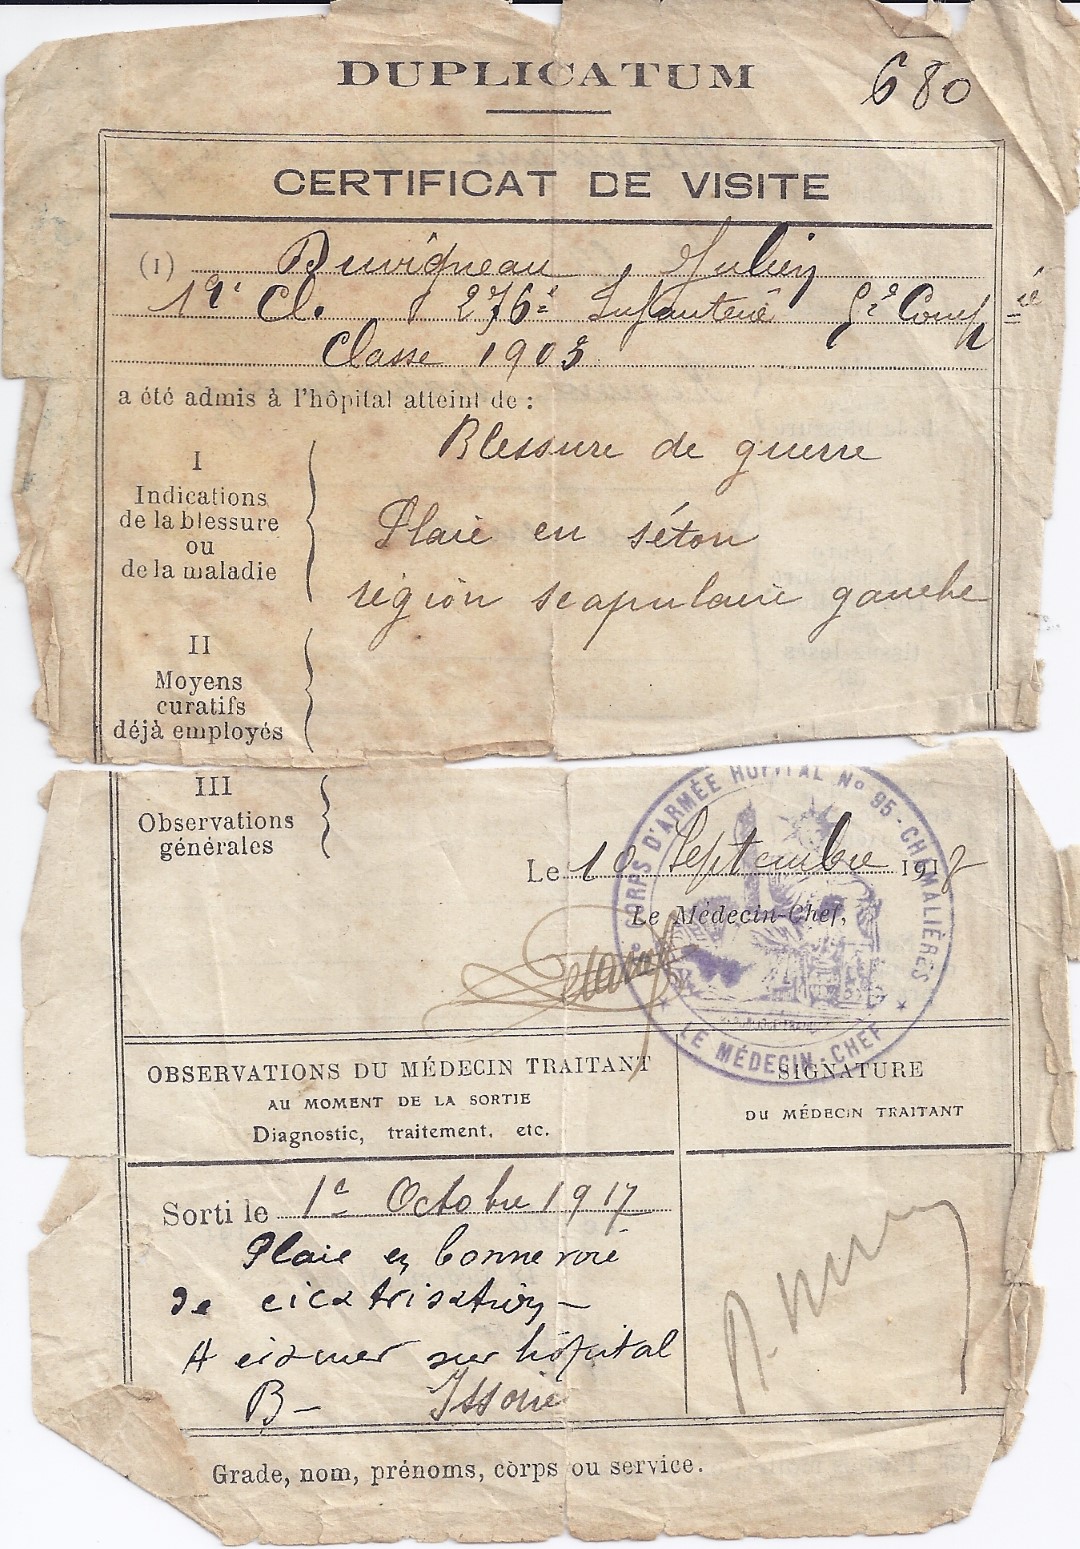 DUPLICATUM
680
CERTIFICAT DE VISITE
(1) Duvigneau Julien
1re Cl. 276e Infanterie Cie
Classe 1903
a été admis à l'hôpital atteint de :
Blessure de guerre
Plaie en séton
région scapulaire gauche
I
Indications
de la blessure
ou
de la maladie
II
Moyens
curatifs
déjà employés
III
Observations
générales
Le 10 Septembre 1917
Le Médecin-Chef,
CORPS D'ARMÉE HOPITAL No 95 - CHAMALIÈRES
LE MÉDECIN-CHEF
OBSERVATIONS DU MÉDECIN TRAITANT
AU MOMENT DE LA SORTIE
Diagnostic, traitement, etc.
SIGNATURE
DU MÉDECIN TRAITANT
Sorti le 1er Octobre 1917
Plaie en bonne voie
de cicatrisation -
A évacuer sur hôpital
B - Issoire
Grade, nom, prénoms, corps ou service.